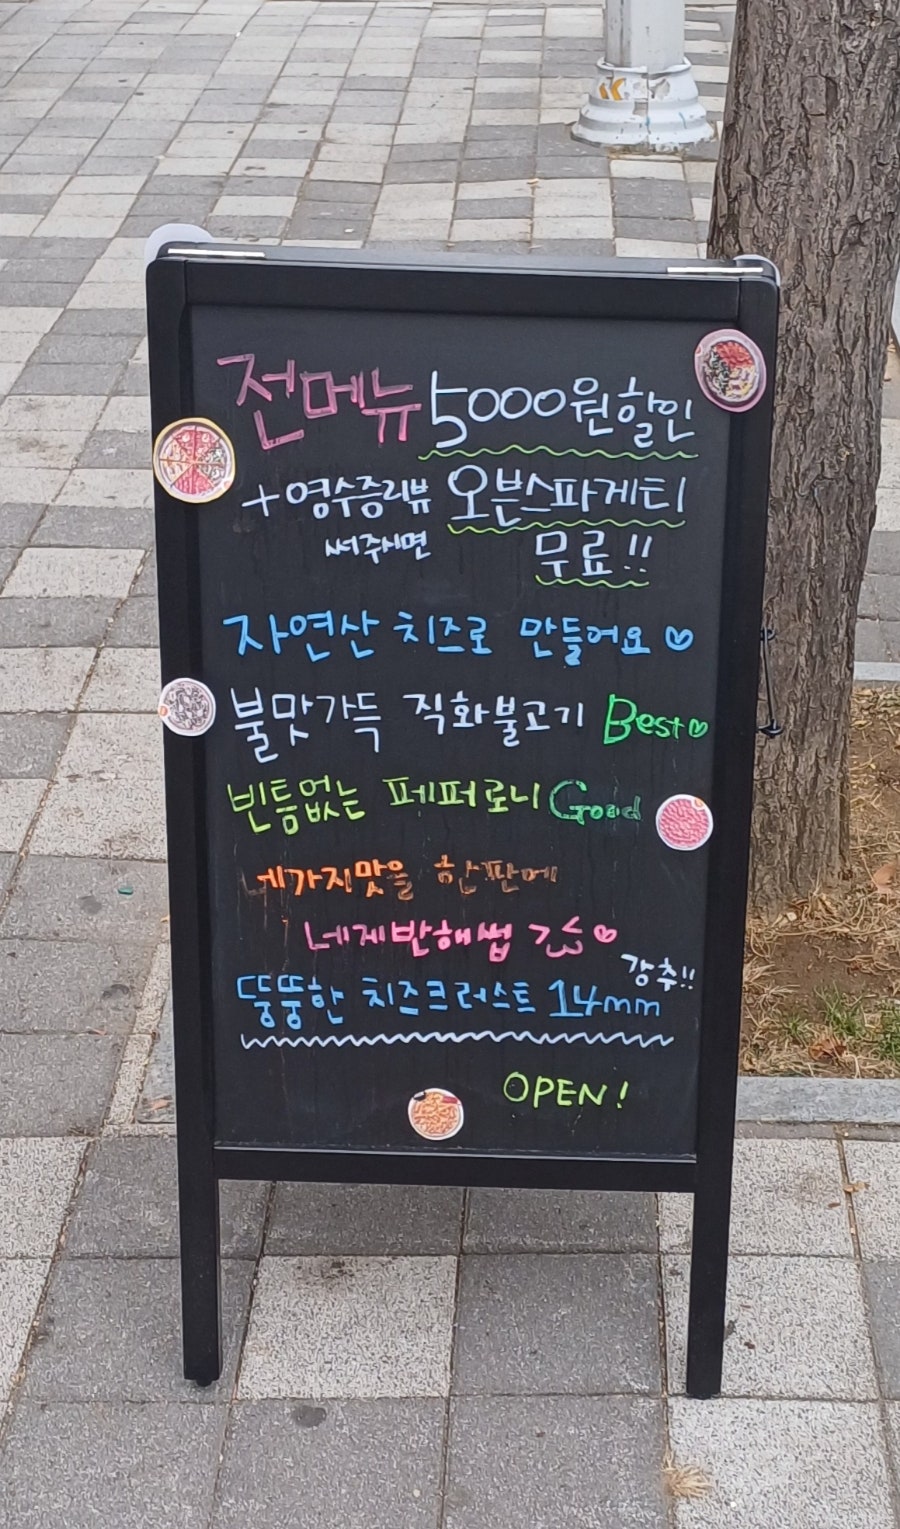 전메뉴 5000원할인
+영수증리뷰 오븐스파게티
써주시면 무료!!
자연산 치즈로 만들어요♡
불맛가득 직화불고기 Best♡
빈틈없는 페퍼로니 Good
네가지맛을 한판에
네게반해썹 ♡
강추!!
뚱뚱한 치즈크러스트 14mm
OPEN!